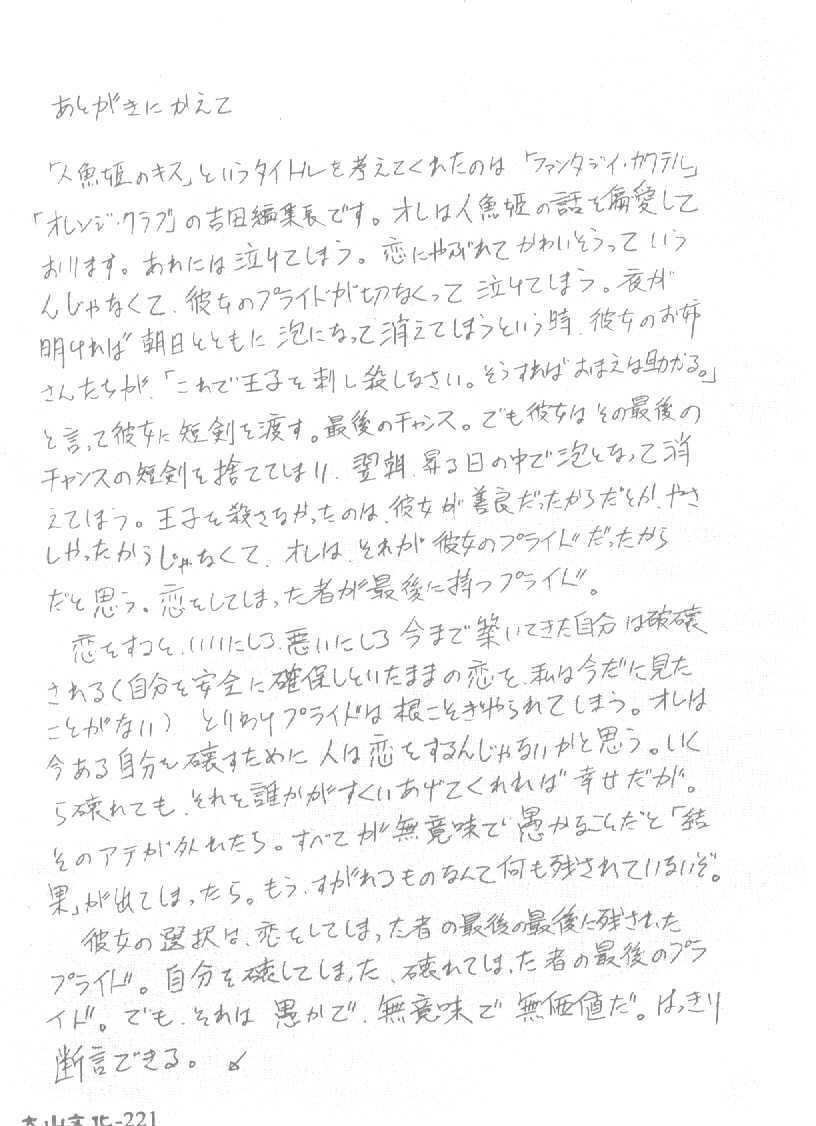 あとがきにかえて
「人魚姫のキス」というタイトルを考えてくれたのは「ファンタジィ・カクテル」
「オレンジ・クラブ」の吉田編集長です。オレは人魚姫の話を偏愛して
おります。あれには泣けてしまう。恋にやぶれてかわいそうっていう
んじゃなくて、彼女のプライドが切なくって泣けてしまう。夜が
明ければ朝日とともに泡になって消えてしまうという時、彼女のお姉
さんたちが、「これで王子を刺し殺しなさい。そうすればおまえは助かる。」
と言って彼女に短剣を渡す。最後のチャンス。でも彼女はその最後の
チャンスの短剣を捨ててしまい、翌朝、昇る日の中で泡となって消
えてしまう。王子を殺さなかったのは、彼女が善良だったからだとか、やさ
しかったからじゃなくて、オレは、それが彼女のプライドだったから
だと思う。恋をしてしまった者が最後に持つプライド。
恋をすると、いいにしろ、悪いにしろ今まで築いてきた自分は破壊
される（自分を安全に確保しといたままの恋を、私は今だに見た
ことがない）とりわけプライドは根こそぎやられてしまう。オレは
今ある自分を壊すために人は恋をするんじゃないかと思う。いく
ら壊れても、それを誰かがすくいあげてくれれば幸せだが。
そのアテが外れたら。すべてが無意味で愚かなことだと「結
果」が出てしまったら。もう、すがれるものなんて何も残されていないぞ。
彼女の選択は、恋をしてしまった者の最後の最後に残された
プライド。自分を壊してしまった、壊れてしまった者の最後のプラ
イド。でも、それは愚かで、無意味で無価値だ。はっきり
断言できる。
-221